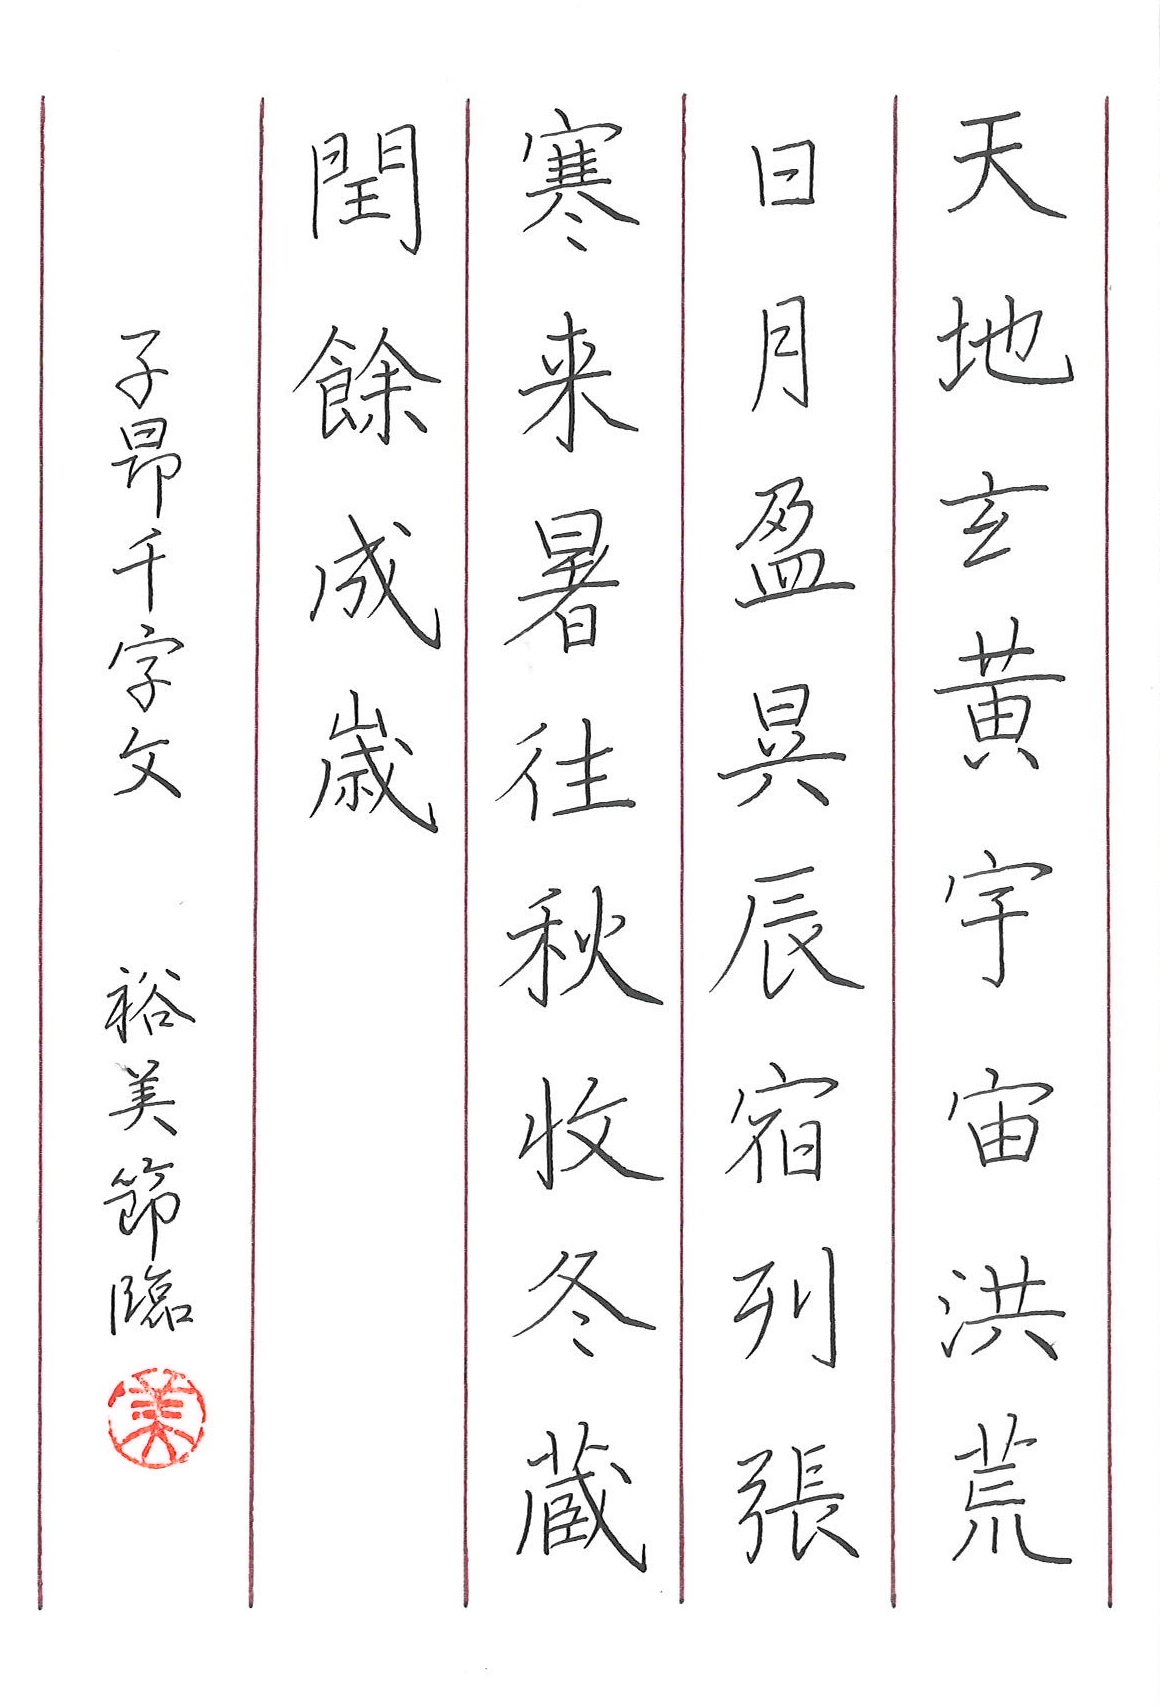 天地玄黄宇宙洪荒
日月盈昃辰宿列張
寒来暑往秋收冬蔵
閏餘成歳
子昂千字文 裕美節臨
美